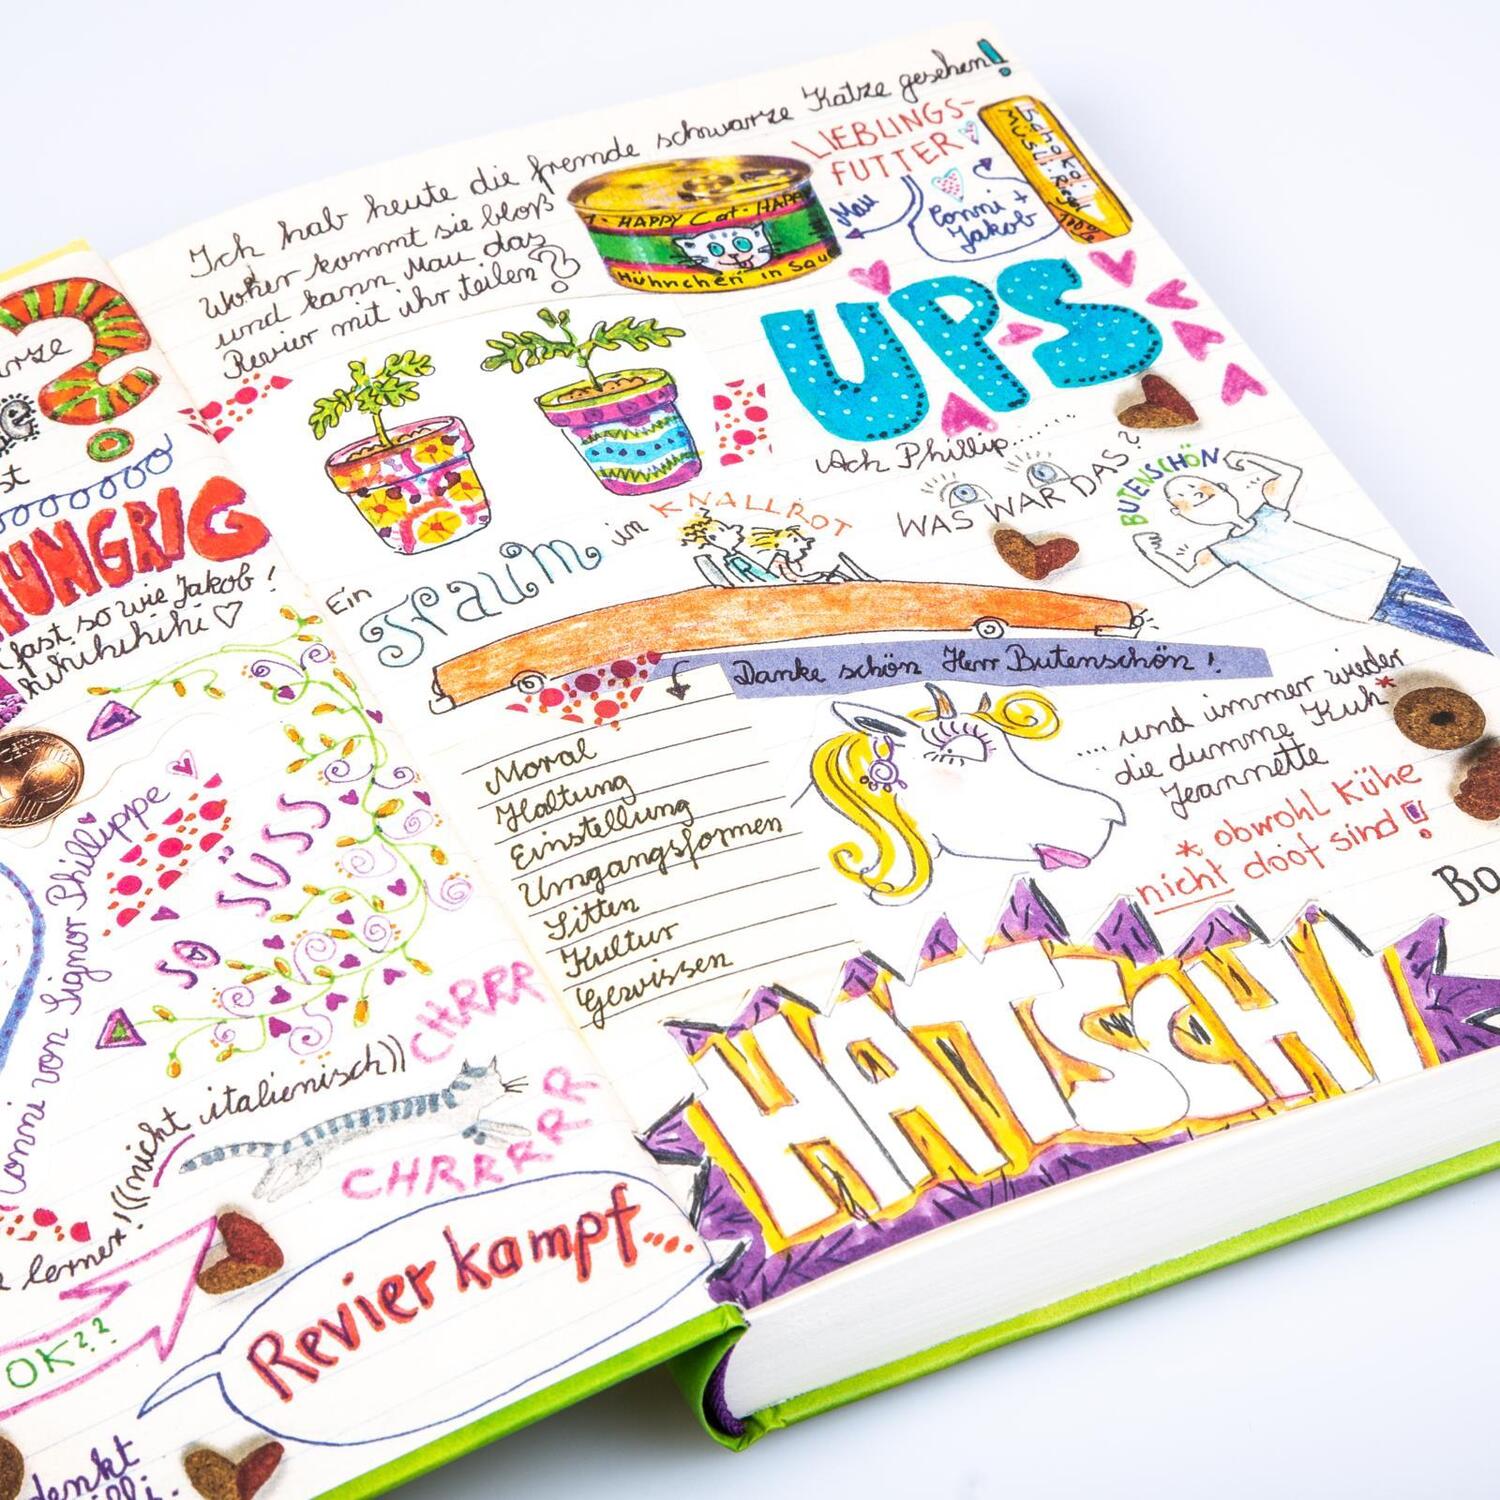 rze
?
st
HUNGRIG
fast so wie Jakob!
hihihihihi ♡
Conni von Signor Phillippe
SO SÜSS
CHRRR
((nicht italienisch))
CHRRRRR
lernen!
Revierkampf...
OK??
denkt
Ich hab heute die fremde schwarze Katze gesehen!
Woher kommt sie bloß
und kann Mau das
Revier mit ihr teilen?
HAPPY Cat - HAPP
Hühnchen in Sau
LIEBLINGS-
FUTTER
Mau
Conni +
Jakob
Schoko
Müsli
UPS
Ach Phillip......
WAS WAR DAS?
BUTENSCHÖN
Ein Traum in KNALLROT
Danke schön Herr Butenschön!
Moral
Haltung
Einstellung
Umgangsformen
Sitten
Kultur
Gewissen
.... und immer wieder
die dumme Kuh*
Jeannette
* obwohl Kühe
nicht doof sind!
Bo
HATSCHI